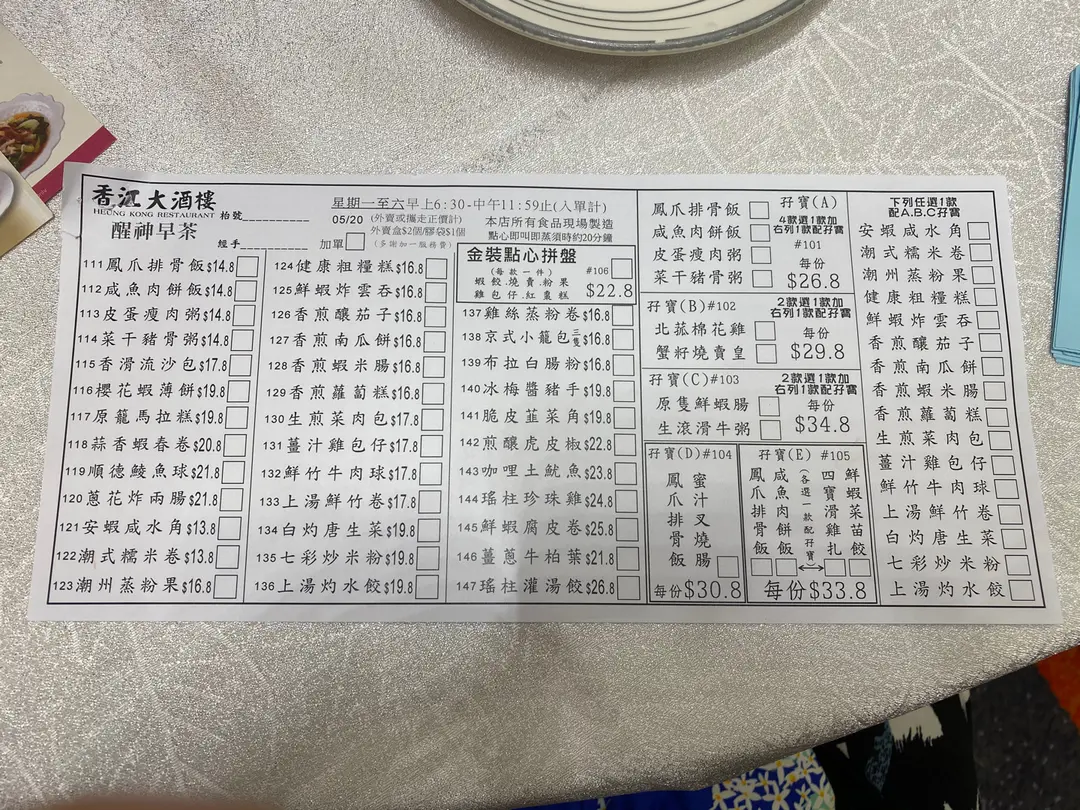 香江大酒樓
HEUNG KONG RESTAURANT
枱號
醒神早茶
經手
加單
星期一至六早上6:30-中午11:59止(入單計)
05/20
(外賣或攜走正價計)
外賣盒$2個/膠袋$1個
(多謝加一服務費)
本店所有食品現場製造
點心即叫即蒸須時約20分鐘
111鳳爪排骨飯$14.8
112咸魚肉餅飯$14.8
113皮蛋瘦肉粥$14.8
114菜干豬骨粥$14.8
115香滑流沙包$17.8
116櫻花蝦薄餅$19.8
117原籠馬拉糕$19.8
118蒜香蝦春卷$20.8
119順德鯪魚球$21.8
120蔥花炸兩腸$21.8
121安蝦咸水角$13.8
122潮式糯米卷$13.8
123潮州蒸粉果$16.8
124健康粗糧糕$16.8
125鮮蝦炸雲吞$16.8
126香煎釀茄子$16.8
127香煎南瓜餅$16.8
128香煎蝦米腸$16.8
129香煎蘿蔔糕$16.8
130生煎菜肉包$17.8
131薑汁雞包仔$17.8
132鮮竹牛肉球$17.8
133上湯鮮竹卷$17.8
134白灼唐生菜$19.8
135七彩炒米粉$19.8
136上湯灼水餃$19.8
金裝點心拼盤
(每款一件)
#106
蝦餃.燒賣.粉果
雞包仔.紅棗糕
$22.8
137雞絲蒸粉卷$16.8
138京式小籠包三隻$16.8
139布拉白腸粉$16.8
140冰梅醬豬手$19.8
141脆皮韮菜角$19.8
142煎釀虎皮椒$22.8
143咖哩土魷魚$23.8
144瑤柱珍珠雞$24.8
145鮮蝦腐皮卷$25.8
146薑蔥牛柏葉$21.8
147瑤柱灌湯餃$26.8
鳳爪排骨飯
咸魚肉餅飯
皮蛋瘦肉粥
菜干豬骨粥
孖寶(A)
4款選1款加
右列1款配孖寶
#101
每份
$26.8
孖寶(B)#102
北菇棉花雞
蟹籽燒賣皇
2款選1款加
右列1款配孖寶
每份
$29.8
孖寶(C)#103
原隻鮮蝦腸
生滾滑牛粥
2款選1款加
右列1款配孖寶
每份
$34.8
孖寶(D)#104
鳳爪排骨飯
蜜汁叉燒腸
每份$30.8
孖寶(E) #105
鳳爪排骨飯
咸魚肉餅飯
(各選一款配孖寶)
四寶滑雞扎
鮮蝦菜苗餃
每份$33.8
下列任選1款
配A.B.C孖寶
安蝦咸水角
潮式糯米卷
潮州蒸粉果
健康粗糧糕
鮮蝦炸雲吞
香煎釀茄子
香煎南瓜餅
香煎蝦米腸
香煎蘿蔔糕
生煎菜肉包
薑汁雞包仔
鮮竹牛肉球
上湯鮮竹卷
白灼唐生菜
七彩炒米粉
上湯灼水餃